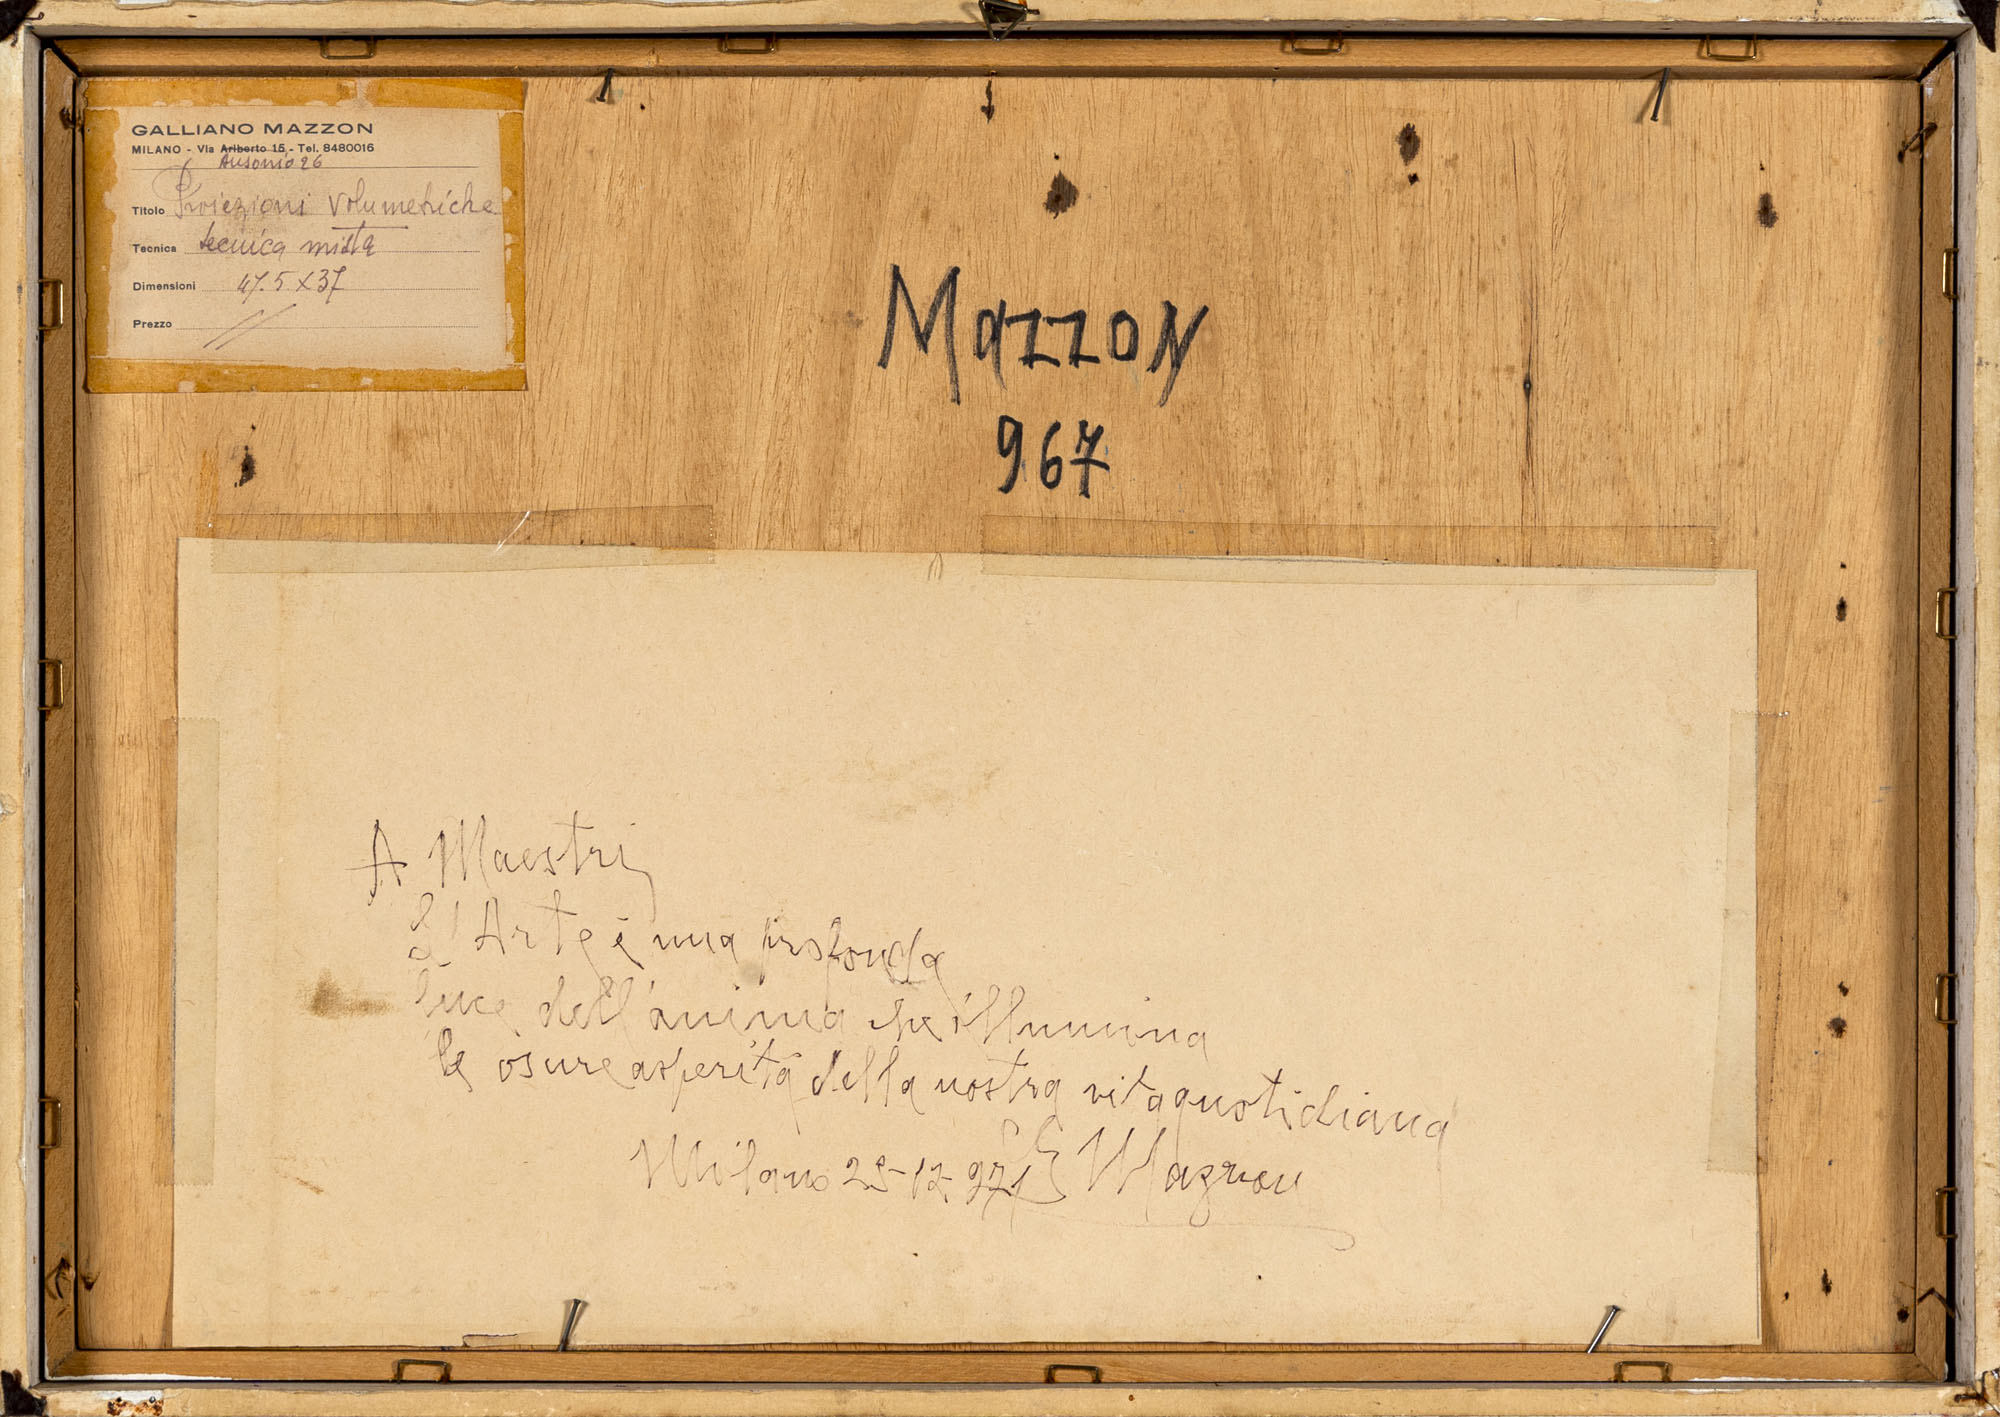 GALLIANO MAZZON
MILANO - Via Ariberto 15 - Tel. 8480016
Ausonio 26
Titolo Proiezioni Volumetriche
Tecnica tecnica mista
Dimensioni 47.5 x 37
Prezzo //
Mazzon
967
A Maestri
L'Arte è una profonda
luce dell'anima che illumina
le oscure asperità della nostra vita quotidiana
Milano 25-12-971 G Mazzon